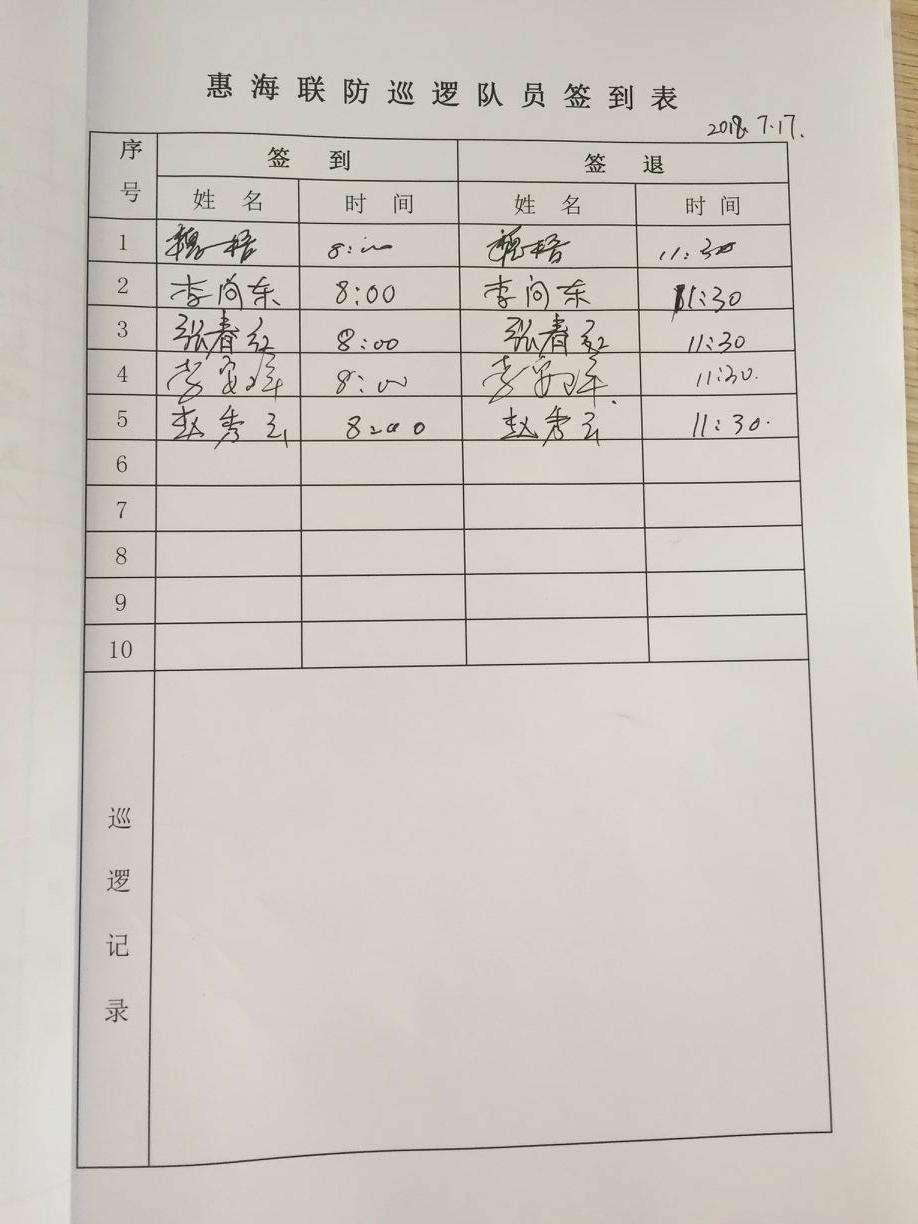 惠海联防巡逻队员签到表
2018.7.17.
序号 签到 签退
姓名 时间 姓名 时间
1 8:00 11:30
2 李向东 8:00 李向东 11:30
3 张春红 8:00 张春红 11:30
4 李 8:00 李 11:30.
5 赵秀云 8:00 赵秀云 11:30.
6
7
8
9
10
巡逻记录